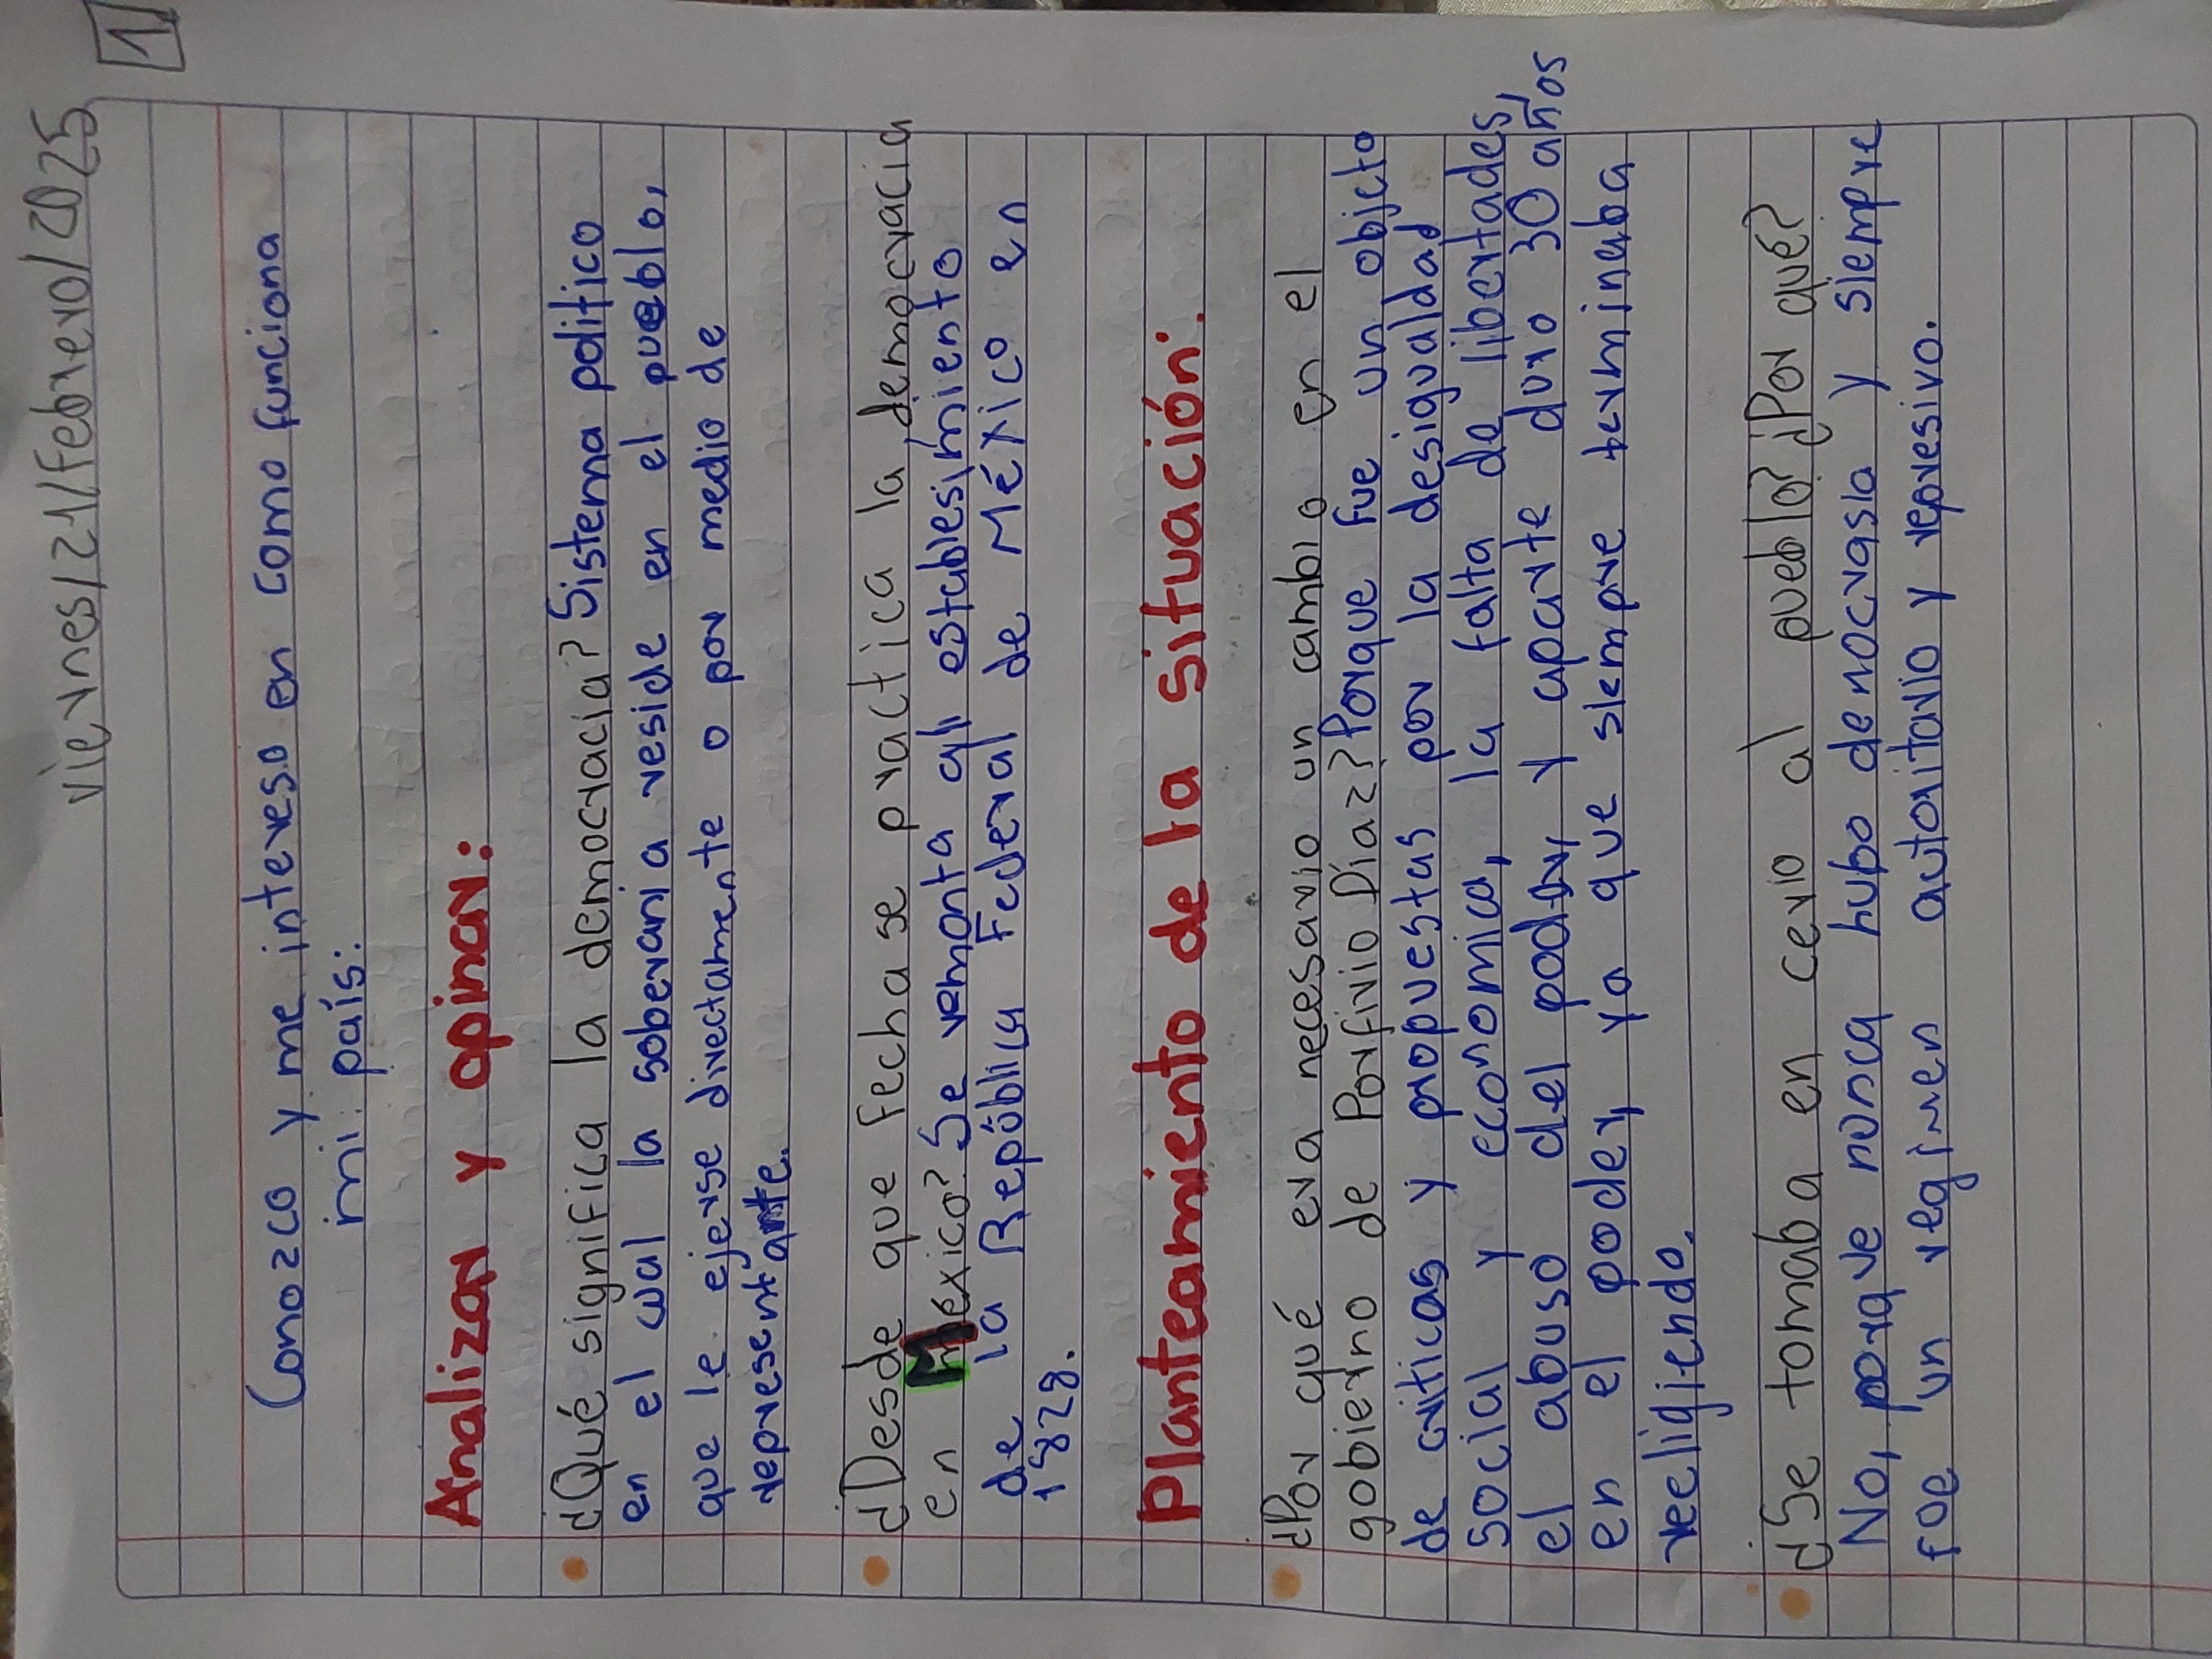 viernes/21/febrero/2025
1
Conozco y me intereso en como funciona
mi país.
Analizar y opinar:
¿Qué significa la democracia? Sistema politico
en el cual la soberania reside en el pueblo,
que le ejerse directamente o por medio de
representante.
¿Desde que fecha se practica la democracia
en México? Se remonta al establesimiento
de la República Federal de México en
1828.
Planteamiento de la situación.
¿Por qué era necesario un cambio en el
gobierno de Porfirio Díaz? Porque fue un objeto
de criticas y propuestas por la desigualdad
social y economica, la falta de libertades,
el abuso del poder, y aparte duro 30 años
en el poder, ya que siempre terminaba
reeligiendo.
¿Se tomaba en cerio al pueblo? ¿Por qué?
No, porque nunca hubo democrasia y siempre
fue un regimen autoritario y represivo.